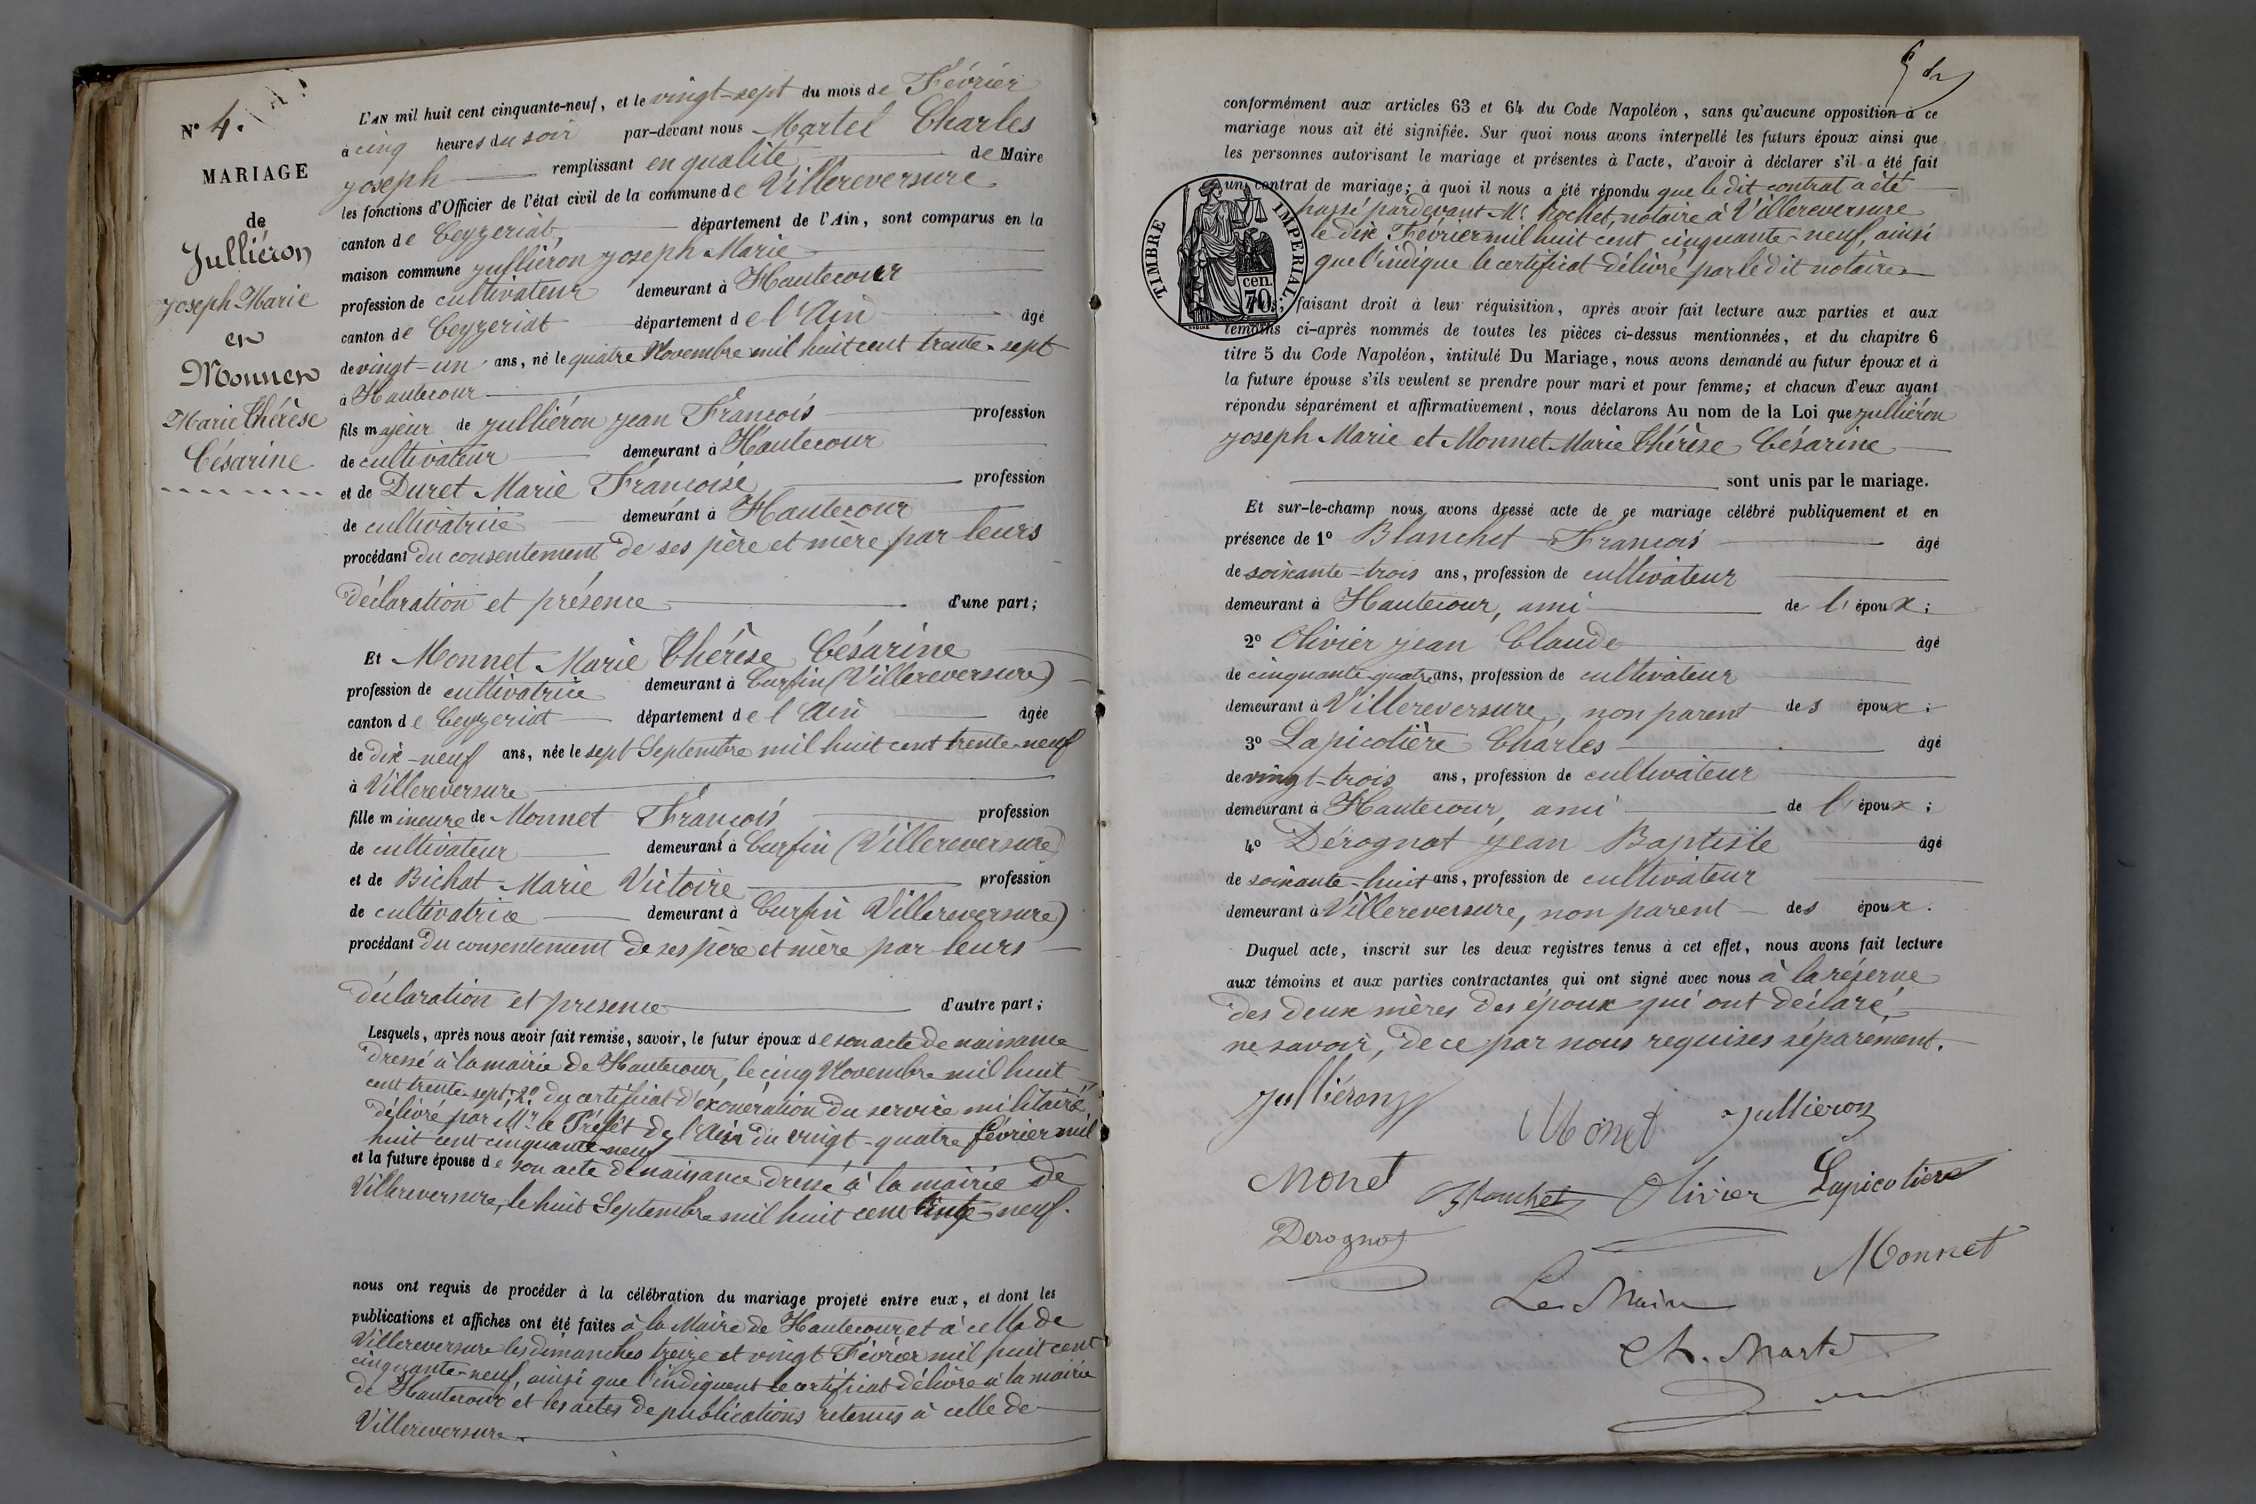 N° 4.
MARIAGE
de
Julliéron
Joseph Marie
en
Monnet
Marie Thérèse
Césarine
L'AN mil huit cent cinquante-neuf, et le vingt-sept du mois de Février
à cinq heures du soir par-devant nous Martel Charles
Joseph remplissant en qualité de Maire
les fonctions d'Officier de l'état civil de la commune de Villereversure
canton de Ceyzeriat, département de l'Ain, sont comparus en la
maison commune Julliéron Joseph Marie
profession de cultivateur demeurant à Hautecour
canton de Ceyzeriat département de l'Ain âgé
de vingt-un ans, né le quatre Novembre mil huit cent trente-sept
à Hautecour
fils majeur de Julliéron Jean François profession
de cultivateur demeurant à Hautecour
et de Duret Marie Françoise profession
de cultivatrice demeurant à Hautecour
procédant du consentement de ses père et mère par leurs
déclaration et présence d'une part;
Et Monnet Marie Thérèse Césarine
profession de cultivatrice demeurant à Curfin (Villereversure)
canton de Ceyzeriat département de l'Ain âgée
de dix-neuf ans, née le sept Septembre mil huit cent trente-neuf
à Villereversure
fille mineure de Monnet François profession
de cultivateur demeurant à Curfin (Villereversure)
et de Bichat Marie Victoire profession
de cultivatrice demeurant à Curfin Villereversure)
procédant du consentement de ses père et mère par leurs
déclaration et présence d'autre part;
Lesquels, après nous avoir fait remise, savoir, le futur époux de son acte de naissance
dressé à la mairie de Hautecour, le cinq Novembre mil huit
cent trente-sept; 2° du certificat d'exonération du service militaire
délivré par Mr. le Préfet de l'Ain du vingt-quatre février mil
huit cent cinquante-neuf
et la future épouse de son acte de naissance dressé à la mairie de
Villereversure, le huit Septembre mil huit cent trente-neuf.
nous ont requis de procéder à la célébration du mariage projeté entre eux, et dont les
publications et affiches ont été faites à la Maire de Hautecour et à celle de
Villereversure les dimanches treize et vingt Février mil huit cent
cinquante-neuf, ainsi que l'indiquent le certificat délivré à la mairie
de Hautecour et les actes de publications retenus à celle de
Villereversure
conformément aux articles 63 et 64 du Code Napoléon, sans qu'aucune opposition à ce
mariage nous ait été signifiée. Sur quoi nous avons interpellé les futurs époux ainsi que
les personnes autorisant le mariage et présentes à l'acte, d'avoir à déclarer s'il a été fait
un contrat de mariage; à quoi il nous a été répondu que le dit contrat a été
passé pardevant Me. Rochet, notaire à Villereversure
le dix Février mil huit cent cinquante-neuf, ainsi
que l'indique le certificat délivré par le dit notaire
TIMBRE IMPERIAL.
70 cen.
faisant droit à leur réquisition, après avoir fait lecture aux parties et aux
témoins ci-après nommés de toutes les pièces ci-dessus mentionnées, et du chapitre 6
titre 5 du Code Napoléon, intitulé Du Mariage, nous avons demandé au futur époux et à
la future épouse s'ils veulent se prendre pour mari et pour femme; et chacun d'eux ayant
répondu séparément et affirmativement, nous déclarons Au nom de la Loi que Julliéron
Joseph Marie et Monnet Marie Thérèse Césarine
sont unis par le mariage.
Et sur-le-champ nous avons dressé acte de ce mariage célébré publiquement et en
présence de 1° Blanchet François âgé
de soixante-trois ans, profession de cultivateur
demeurant à Hautecour, ami de l'époux;
2° Olivier Jean Claude âgé
de cinquante-quatre ans, profession de cultivateur
demeurant à Villereversure, non parent des époux;
3° Lapicotière Charles âgé
de vingt-trois ans, profession de cultivateur
demeurant à Hautecour, ami de l'époux;
4° Dérognat Jean Baptiste âgé
de soixante-huit ans, profession de cultivateur
demeurant à Villereversure, non parent des époux.
Duquel acte, inscrit sur les deux registres tenus à cet effet, nous avons fait lecture
aux témoins et aux parties contractantes qui ont signé avec nous à la réserve
des deux mères des époux qui ont déclaré
ne savoir, de ce par nous requises séparément.
Julliéron
Monet Jullieron
Monet Blanchet Olivier Lapicotiere
Derognat
Monnet
Le Maire
Ch. Martel